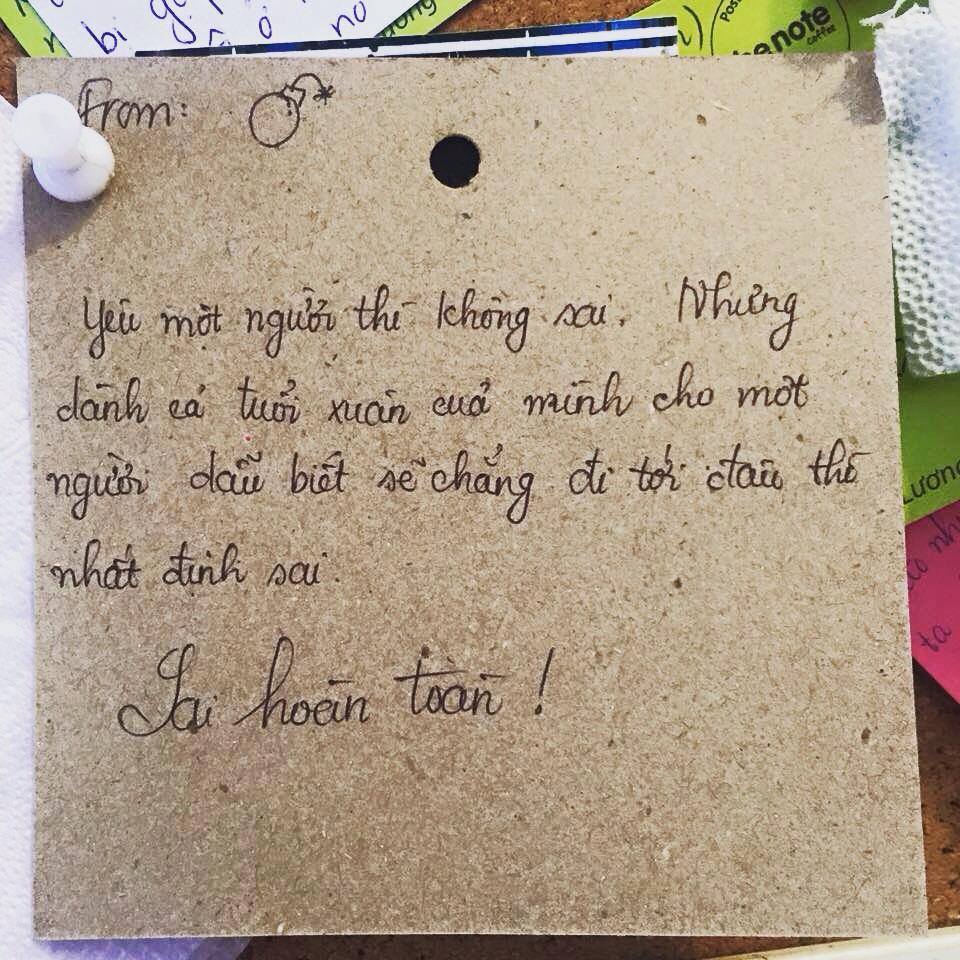 bi
no
Pos
the note
coffee
From:
Yêu một người thì không sai. Nhưng
dành cả tuổi xuân của mình cho một
người dẫu biết sẽ chẳng đi tới đâu thì
nhất định sai.
Sai hoàn toàn!
Lương
ta